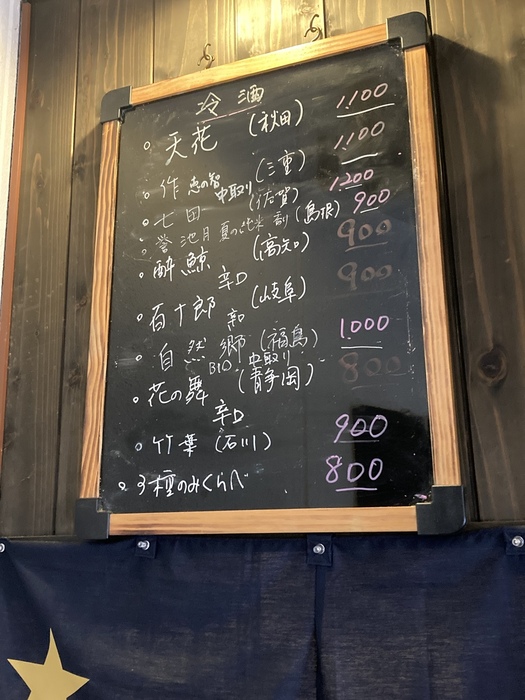 冷酒
。天花 (秋田) 1,100
。作 恵の智 中取り (三重) 1,100
。七田 (佐賀) 1,200
。誉池月 夏の純米 (島根) 900
。酔鯨 辛口 (高知) 900
。百十郎 (岐阜) 900
。自然郷 BIO 中取り (福島) 1,000
。花の舞 辛口 (静岡) 800
。竹葉 (石川) 900
。3種のみくらべ 800